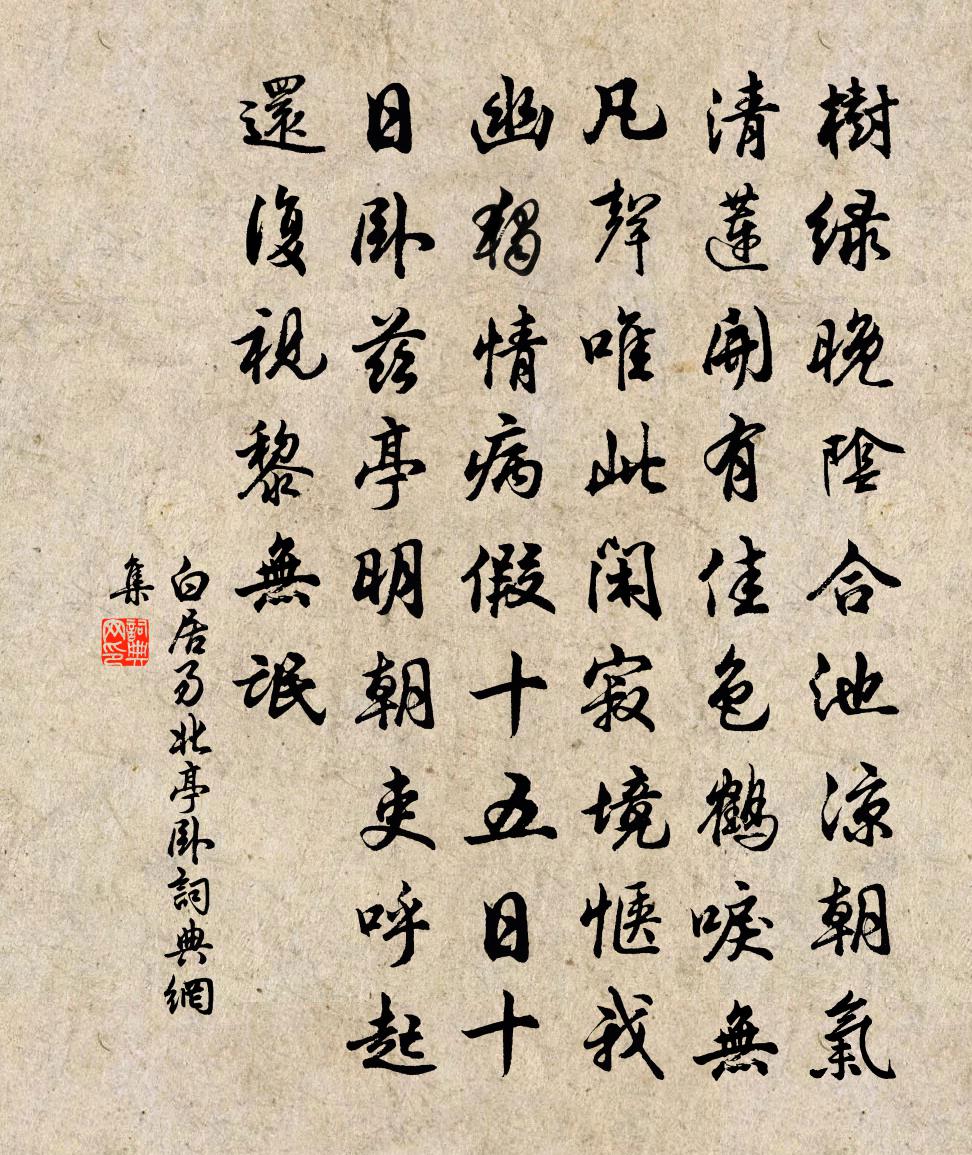 樹緑晚陰合池凉朝氣
清蓮開有佳色鶴唳無
凡聲唯此閑寂境愜我
幽獨情病假十五日十
日卧兹亭明朝吏呼起
還復視黎無氓
白居易北亭卧詞典網
集
詞典
网印